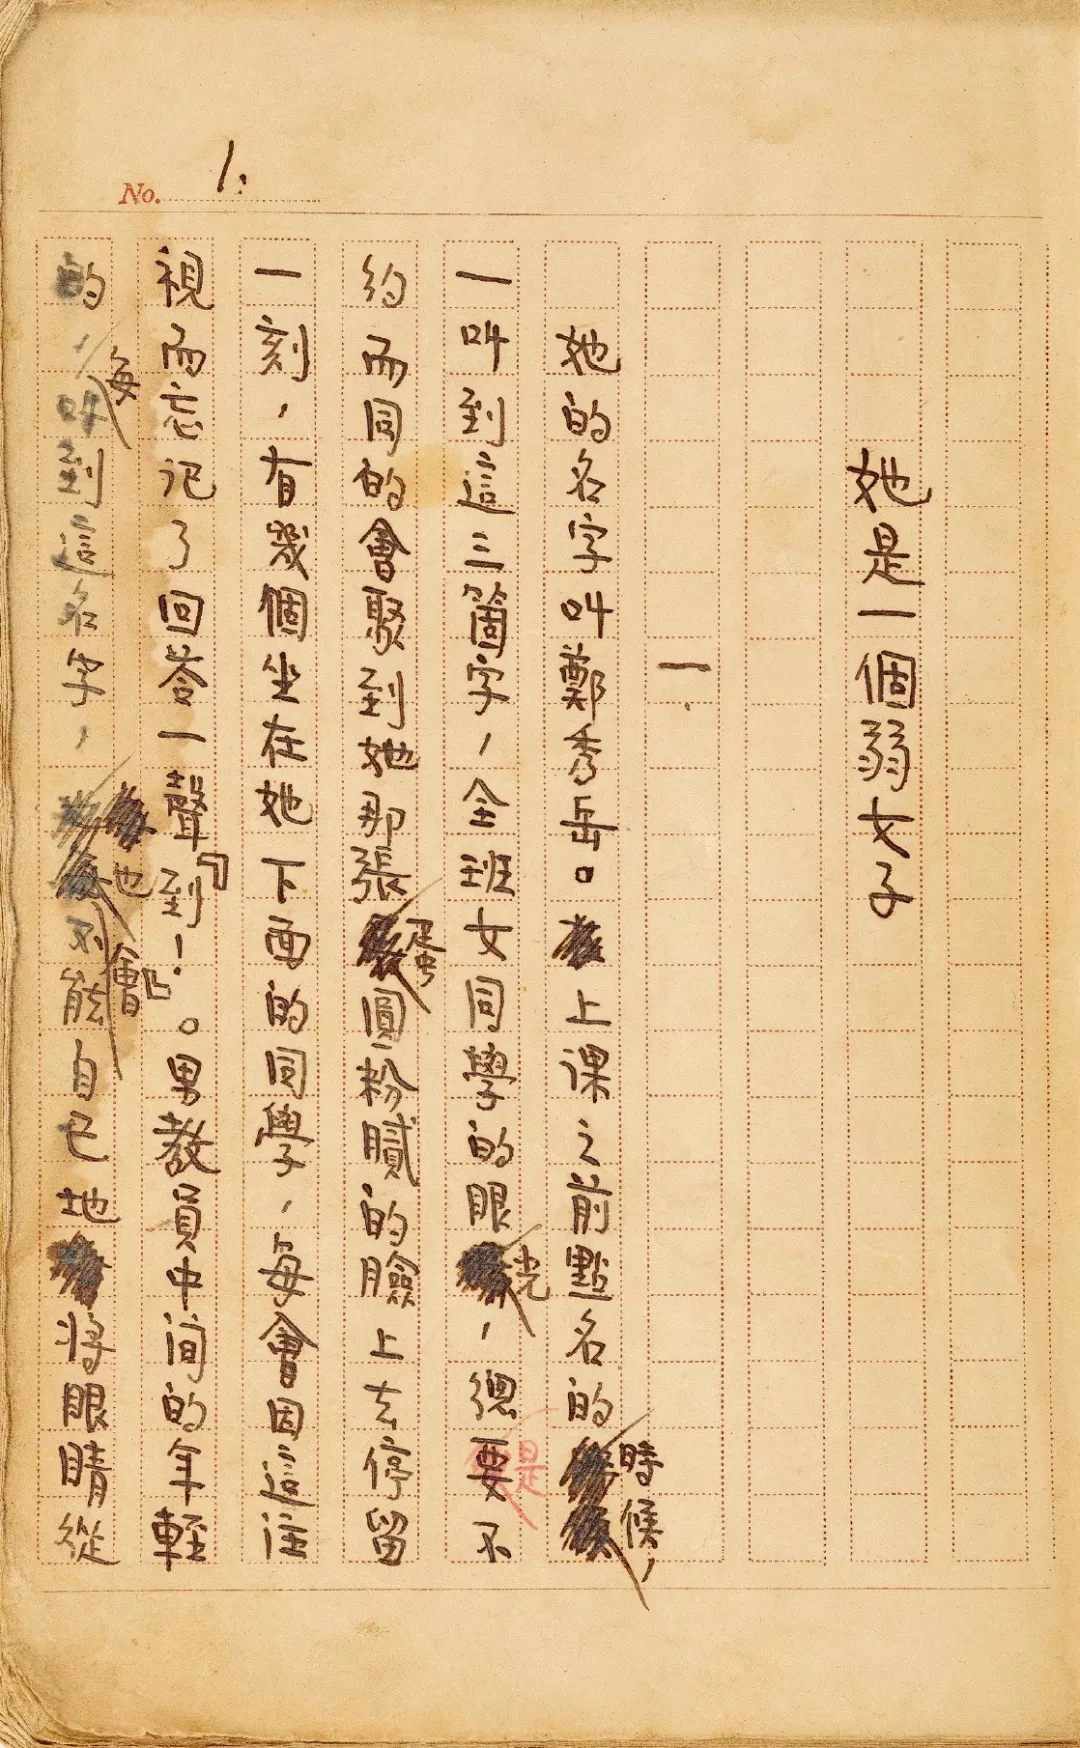 No. 1.
她是一個弱女子
一.
她的名字叫鄭秀岳。上課之前點名的時候，
一叫到這三箇字，全班女同學的眼光，總要不
是
約而同的會聚到她那張蛋圓粉膩的臉上去停留
一刻，有幾個坐在她下面的同學，每會因這注
視而忘記了回答一聲『到！』。男教員中间的年輕
的，每叫到這名字，也會不能自已地將眼睛從